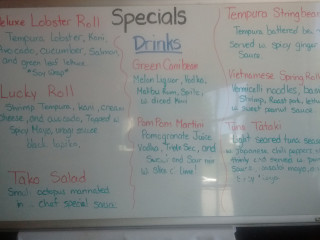 Specials
Deluxe Lobster Roll
Tempura Lobster, Kani,
avocado, cucumber, Salmon
and green leaf lettuce
Lucky Roll
Shrimp Tempura, kani, cream
cheese, and avocado, Topped w/
Spicy Mayo,
black
Tako Salad
Small octopus marinated
in chef special sauce
Drinks
Green Cambean
Melon Liquor, Vodka,
Malibu Rum, Sprite,
w/ sliced Kiwi
Pom Pom Martini
Pomegranate Juice,
Vodka, Triple Sec, and
Sweet and Sour mix
w/ slice lime
Tempura Stringbean
Tempura battered
Served w/ spicy ginger
Sauce
Vietnamese Spring Roll
Vermicelli noodles,
Shrimp, Roast pork,
w/ sweet peanut sauce
Tuna Tataki
Light seared tuna
w/ Japanese chili pepper
and served w/
Sauce, mayo,